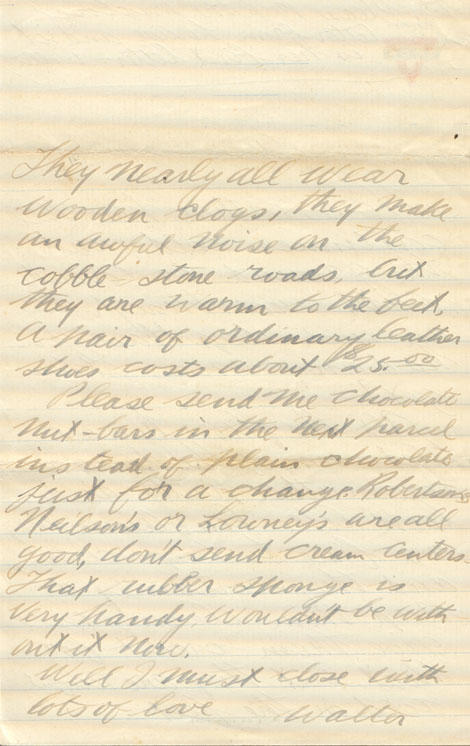 They nearly all wear
wooden clogs, they make
an awful noise on the
cobble stone roads, but
they are warm to the feet.
A pair of ordinary leather
shoes costs about $25.00
Please send me chocolate
nut-bars in the next parcel
instead of plain chocolate
just for a change. Robertsons
Neilson's or Lowney's are all
good, don't send cream centers.
That rubber sponge is
very handy wouldn't be with
out it now.
Well I must close with
lots of love Walter